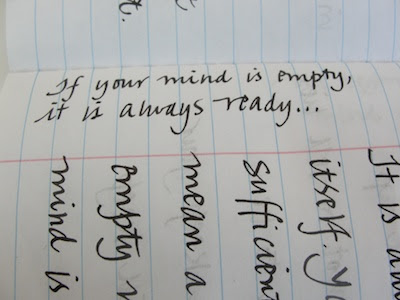 If your mind is empty,
it is always ready...
It is
itself.
sufficient
mean a
empty
mind is